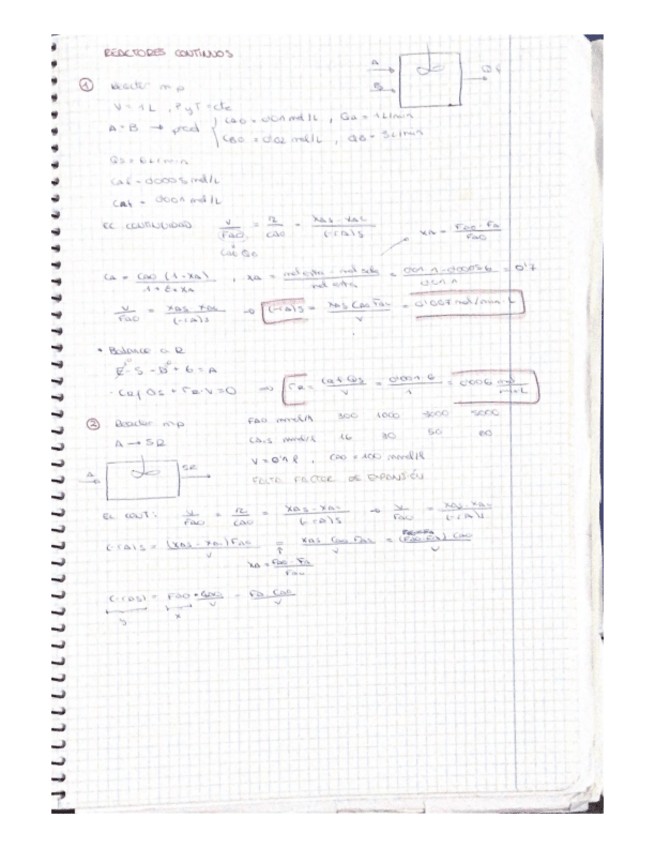 REACTORES CONTINUOS
① Reactor mp
V = 1L , P y T = cte
A + B → prod
CAO = 0'01 mol/L , QA = 1L/min
CBO = 0'02 mol/L , QB = 5L/min
A
B
Qs = 6L/min
CAf = 0'0005 mol/L
CRf = 0'001 mol/L
EC CONTINUIDAD V/FAO = τ/CAO = (XAS - XAE)/(-rA)S
CAO QO
XA = (FAO - FA)/FAO
CA = CAO (1-XA)/(1+εXA) , XA = (mol entra - mol sale)/mol entra = = 0'7
V/FAO = (XAS - XAE)/(-rA)S ⇒ (-rA)S = = mol/min·L
• Balance a R
E - S - D + G = A
- CRf Qs + rR·V = 0 ⇒ rR = CRf·Qs/V = 0'001·6/1 = 0'006 mol/min·L
② Reactor mp
A → 5R
FAO mmol/h 300 1000 3000 5000
CAS mmol/l 16 30 50 60
V = 0'1 l , CAO = 100 mmol/l
FALTA FACTOR DE EXPANSIÓN
A
5R
EC CONT: V/FAO = τ/CAO = (XAS - XAE)/(-rA)S → V/FAO = (XAS - XAE)/(-rA)S
(-rA)S = (XAS - XAE) FAO/V =
XA = (FAO - FA)/FAO
(-rAS) = FAO · CAO/V - FA CAO/V
y
x